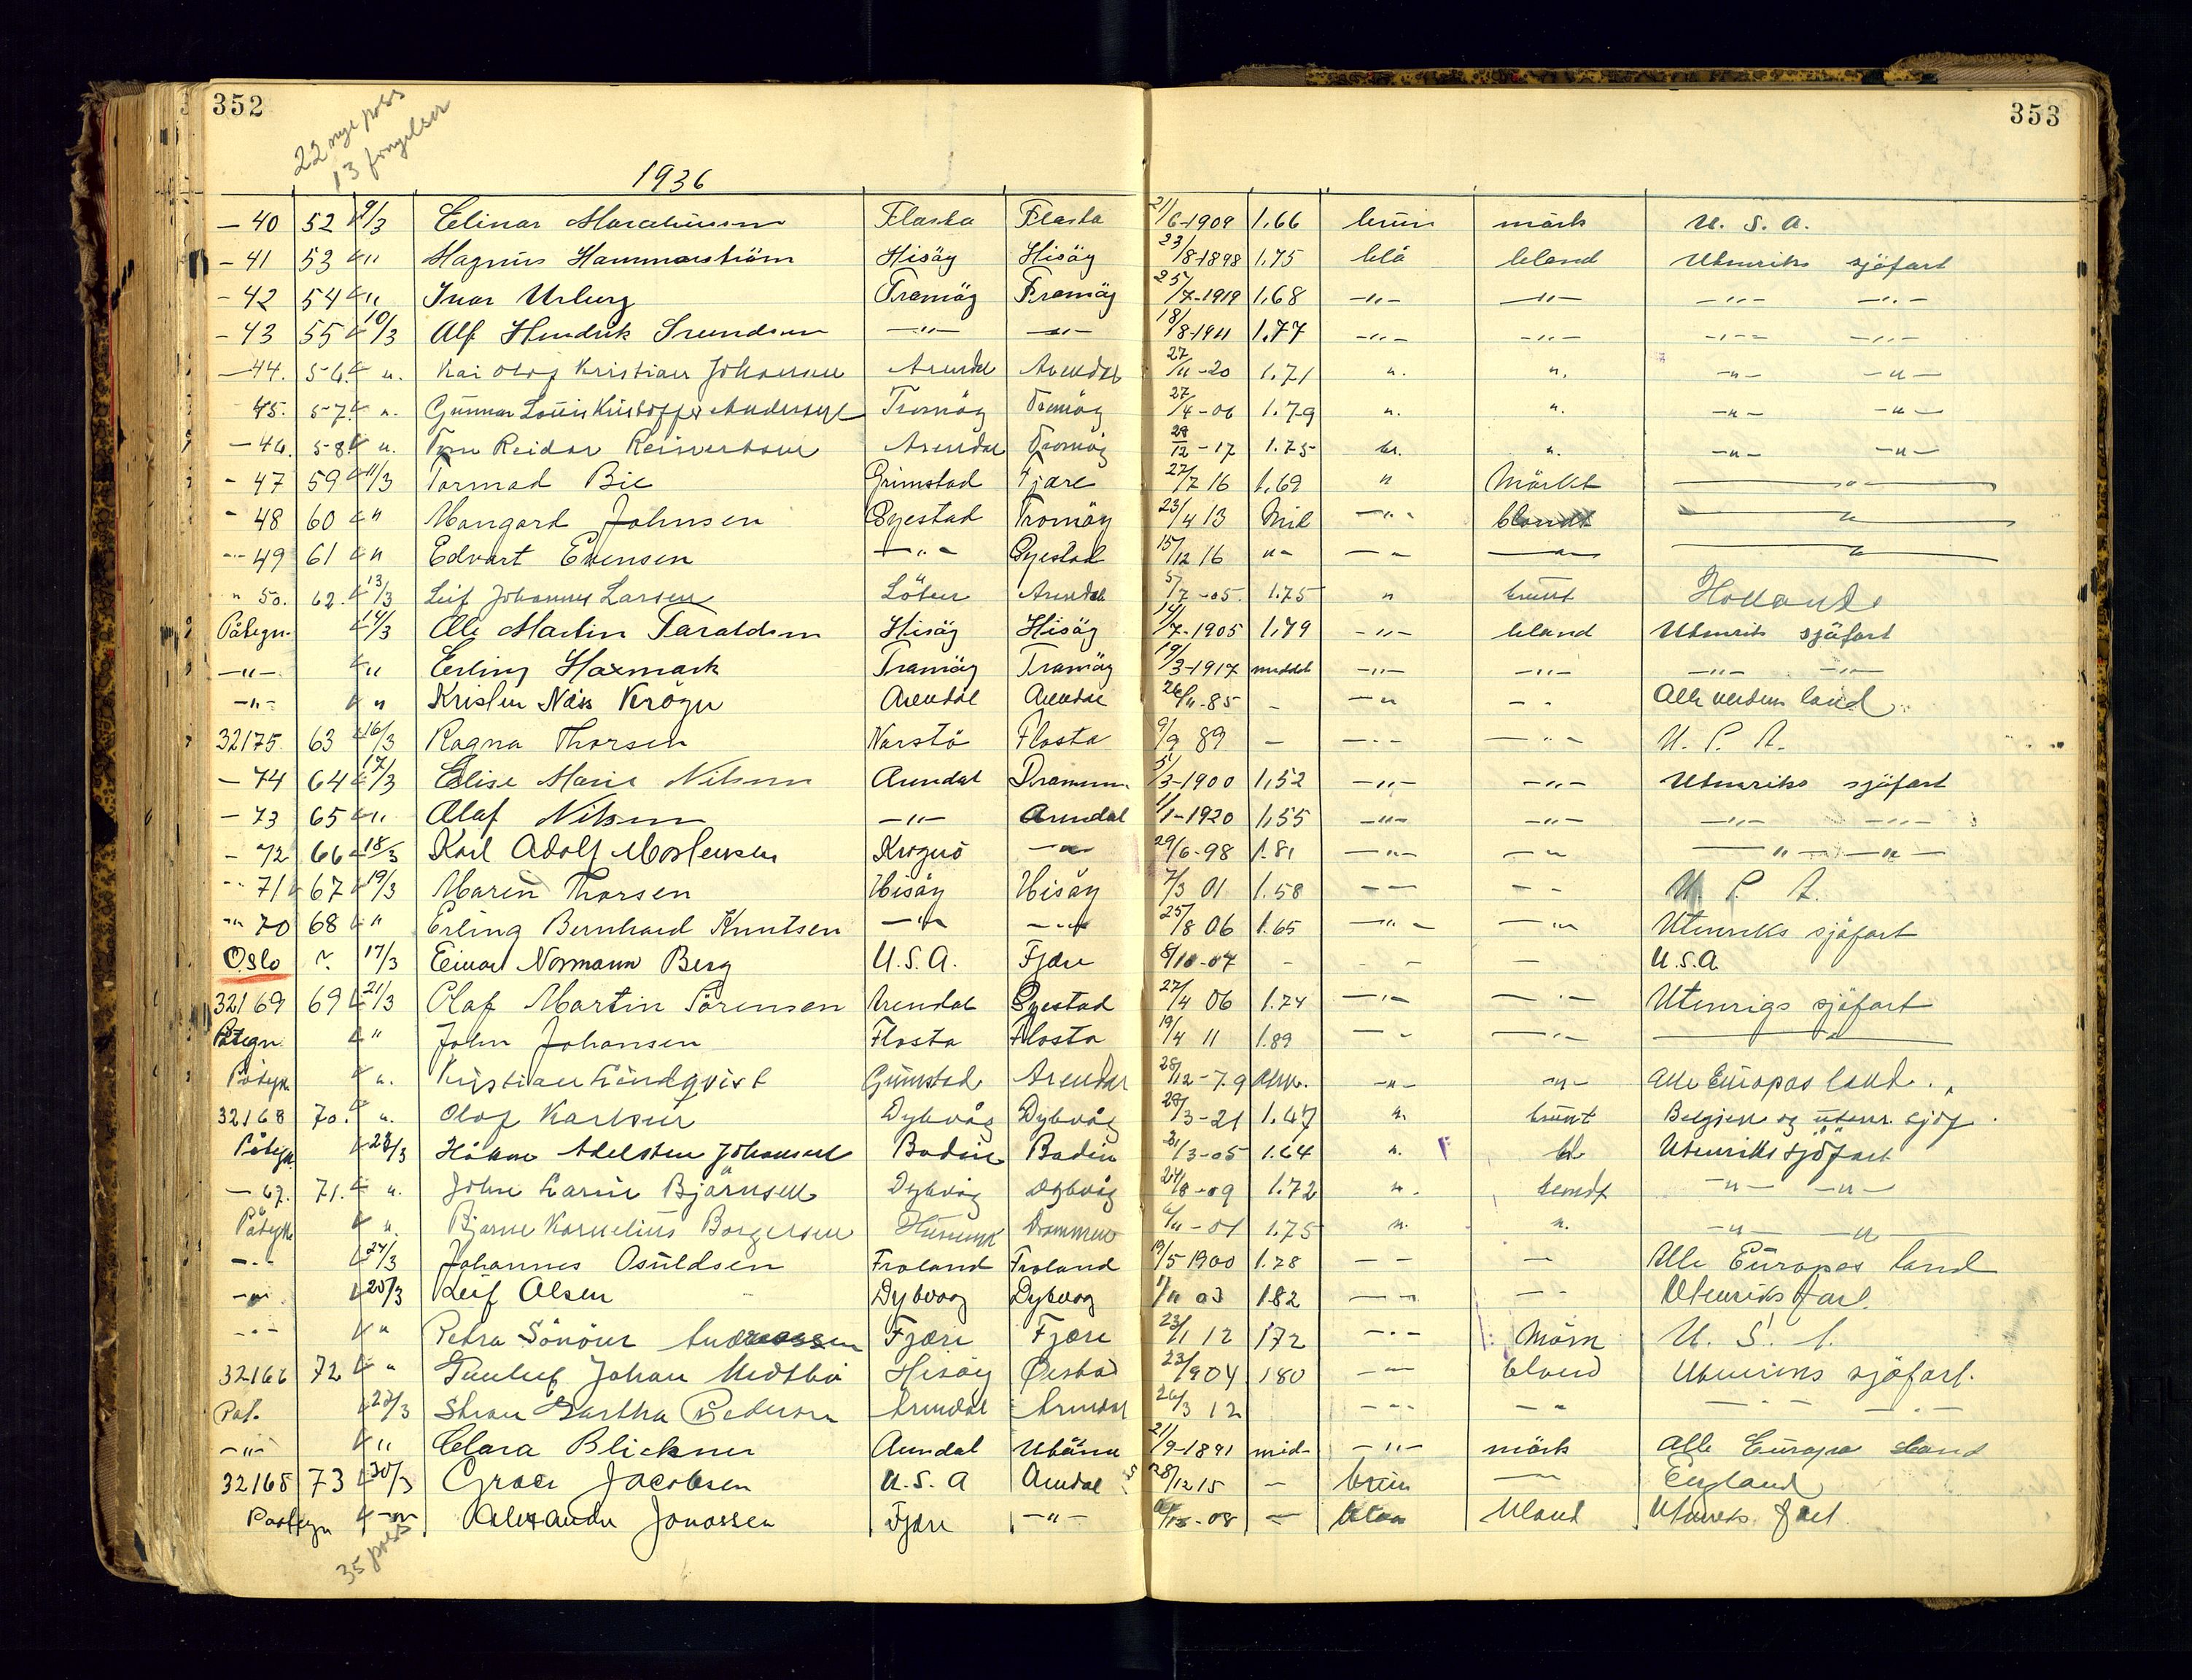 352
353
22 nye pass
13 fornyelser
1936
— 40 52 9/3 Elinar Flasta Flasta 21/6-1909 1.66 brun mörk U. S. A.
— 41 53 " Magnus Hammarström Hisöy Hisöy 23/8-1898 1.75 blå blond Utenriks sjöfart
— 42 54 " Ivar Tromöy Tromöy 25/7-1919 1.68 —"— —"— —"— —"—
— 43 55 10/3 Alf Hendrik —"— —"— 18/8-1911 1.77 —"— —"— —"— —"—
— 44. 56. " Kai Olaf Kristian Johansen Arendal Arendal 27/11-20 1.71 " " —"— —"—
45. 57. " Gunnar Louis Kristoffer Andersen Tromöy Tromöy 27/4-06 1.79 " " —"— —"—
— 46. 58. " Tom Reidar Reinertsen Arendal Tromöy 28/12-17 1.75 br. " —"— —"—
- 47 59 11/3 Tormod Bie Grimstad Fjære 27/7 16 1.69 " Mörkt —"—
- 48 60 " Mangard Johnsen Öyestad Tromöy 23/4 13 Mid —"— blondt —"—
- 49 61 " Edvart Evensen —"— Öyestad 15/12 16 "— — — —"— —"—
" 50. 62. 13/3 Leif Johannes Larsen Löten Arendal 5/7-05. 1.75 " brunt Holland
Påtegn. 14/3 Ole Martin Taraldsen Hisöy Hisöy 14/7-1905 1.79 —"— blond Utenriks sjöfart
—"— " Erling Haxmark Tromöy Tromöy 19/3-1917 middel —"— —"— —"— —"—
—"— " Kristen Næs Krögn Arendal Arendal 26/11-85 - —"— - - Alle verdens land
32175 63 16/3 Ragna Thorsen Narstö Flosta 9/9 89 — —"— —"— U. S. A.
— 74 64 17/3 Elise Marie Nilsen Arendal Drammen 5/3-1900 1,52 —"— —"— Utenriks sjöfart
— 73 65 " Olaf Nilsen —"— Arendal 1/1-1920 1,55 —"— —"— —"— —"—
- 72 66 18/3 Karl Adolf Mortensen —"— 29/6-98 1.81 —"— —"— —"— —"—
- 71 67 19/3 Maren Thorsen Hisöy Hisöy 7/3 01 1.58 — — — - U. S. A.
" 70 68 " Erling Bernhard Knutsen —"— —"— 25/8 06 1.65 —"— —"— Utenriks sjöfart
Oslo 17/3 Einar Normann Berg U.S.A. Fjære 8/10-07 - - — U.S.A.
32169 69 21/3 Olaf Martin Sörensen Arendal Öyestad 27/4 06 1.74 —"— —"— Utenrigs sjöfart
Påtegn " John Johansen Flosta Flosta 19/4 11 1.89 —"— —"— —"—
Påtegn " Kristian Lindqvist Grimstad Arendal 28/12-79 —"— —"— Alle Europas land.
32168 70. " Olaf Karlsen Dybvåg Dybvåg 28/3-21 1.47 " brunt Belgien og utenr. sjöf.
Påtegn 23/3 Håkon Adelsten Johansen Bodin Bodin 31/3-05 1.64 " bl. Utenriks sjöfart
— 67. 71. " John Karin Björnsen Dybvåg Dybvåg 1.72 " —"— —"—
Påtegn " Bjarne Kornelius Borgersen Drammen 6/11-01 1.75 " " —"— —"—
—"— 24/3 Johannes Osuldsen Froland Froland 19/5 1900 1.78 — — — Alle Europas land
—"— 25/3 Leif Olsen Dybvaag Dybvaag 1/11 03 182 —"— — - Utenriks fart.
—"— " Petra Sönöve Andreassen Fjære Fjære 23/1 12 172 —"— Mörk U. S. A.
32166 72 " Gunleif Johan Hisöy 23/9 04 180 —"— blond Utenriks sjöfart.
Pat. 28/3 Martha Pedersen Arendal Arendal 26/3 12 —"— —"— —"— —"—
—"— " Clara Blickner Arendal 21/9-1891 mid- —"— mörk Alle Europas land
32165 73 30/3 Grace Jacobsen U.S.A Arendal 28/12 15 — brun — England
Pategn —"— Alexander Jonassen Fjære —"— 08 — blaa blond Utenriks fart
35 pass